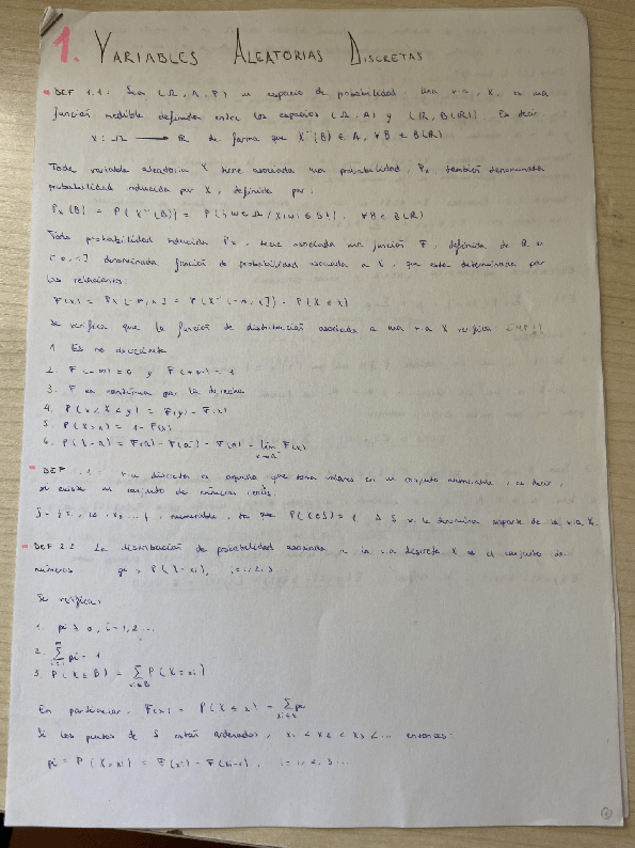 1. VARIABLES ALEATORIAS DISCRETAS
DEF 1.1: Sea (Ω, A, P) un espacio de probabilidad. Una v.a., X, es una
función medible definida entre los espacios (Ω, A) y (R, B(R)). Es decir
X: Ω → R de forma que X⁻¹(B) ∈ A, ∀B ∈ B(R)
Toda variable aleatoria X tiene asociada una probabilidad, Px, también denominada
probabilidad inducida por X, definida por:
Px(B) = P(X⁻¹(B)) = P({ω ∈ Ω / X(ω) ∈ B}), ∀B ∈ B(R)
Toda probabilidad inducida Px, tiene asociada una función F, definida de R en
[0,1] denominada función de probabilidad asociada a X, que está determinada por
las relaciones:
F(x) = Px(-∞,x] = P(X⁻¹(-∞,x]) = P(X ≤ x)
Se verifica que la función de distribución asociada a una v.a X verifica
1. Es no decreciente
2. F(-∞) = 0 y F(+∞) = 1
3. F es continua por la derecha
4. P(x < X ≤ y) = F(y) - F(x)
5. P(X > x) = 1 - F(x)
6. P(X = a) = F(a) - F(a⁻) = F(a) - lim F(x)
x→a⁻
DEF v.a discreta es aquella que toma valores en un conjunto numerable, es decir,
si existe un conjunto de números
numerable, tal que P(X∈S) = 1. A S se le denomina soporte de la v.a X.
DEF 2.2 La distribución de probabilidad asociada a la v.a discreta X es el conjunto de
números pi = P(X = xi), i = 1, 2, 3...
Se verifica:
1. pi ≥ 0, i = 1, 2...
2. ∑ pi = 1
3. P(X ∈ B) = ∑ P(X = xi)
xi∈B
En particular, F(x) = P(X ≤ x) = ∑ pi
xi≤x
Si los puntos de S están ordenados, x1 < x2 < x3 <... entonces:
pi = P(X = xi) = F(xi) - F(xi-1), i = 1, 2, 3...